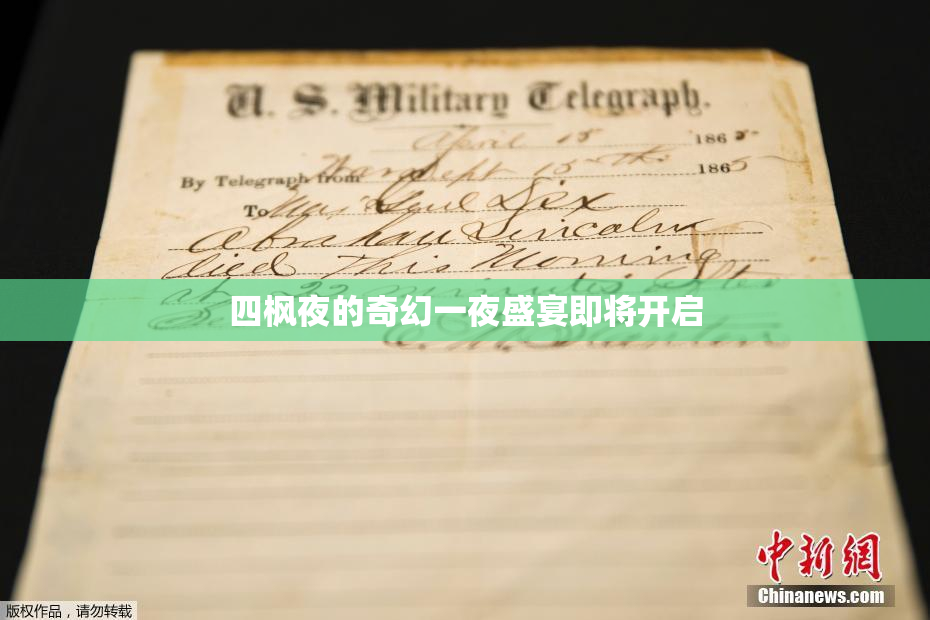 U. S. Military Telegraph.
April 15 1865
By Telegraph from War Dept 15th 1865
To Maj Genl Dix
Abraham Lincoln
died This Morning
at 22 minutes after
四枫夜的奇幻一夜盛宴即将开启
中新网
Chinanews.com
版权作品，请勿转载